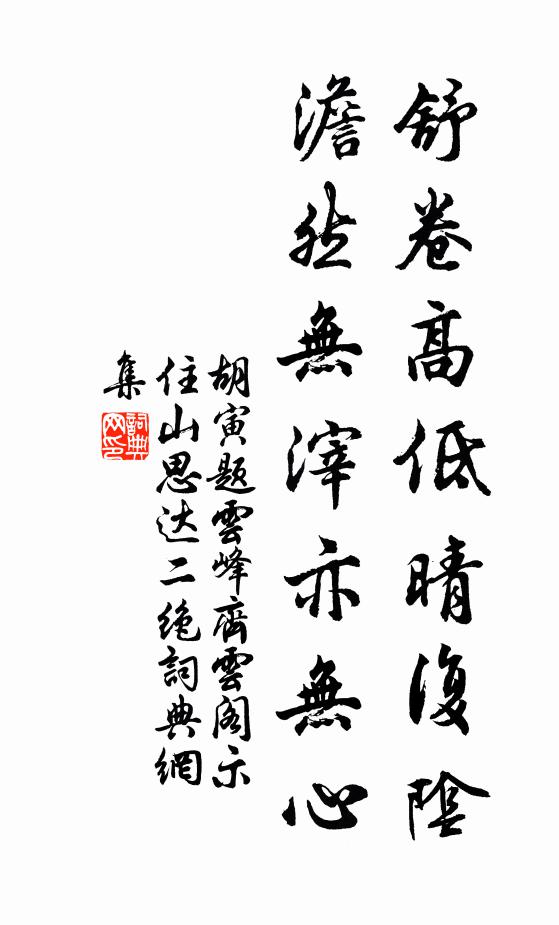 舒卷高低晴復陰
澹然無滓亦無心
胡寅题雲峰齊雲阁示
住山思达二绝詞典網
集
詞典网印